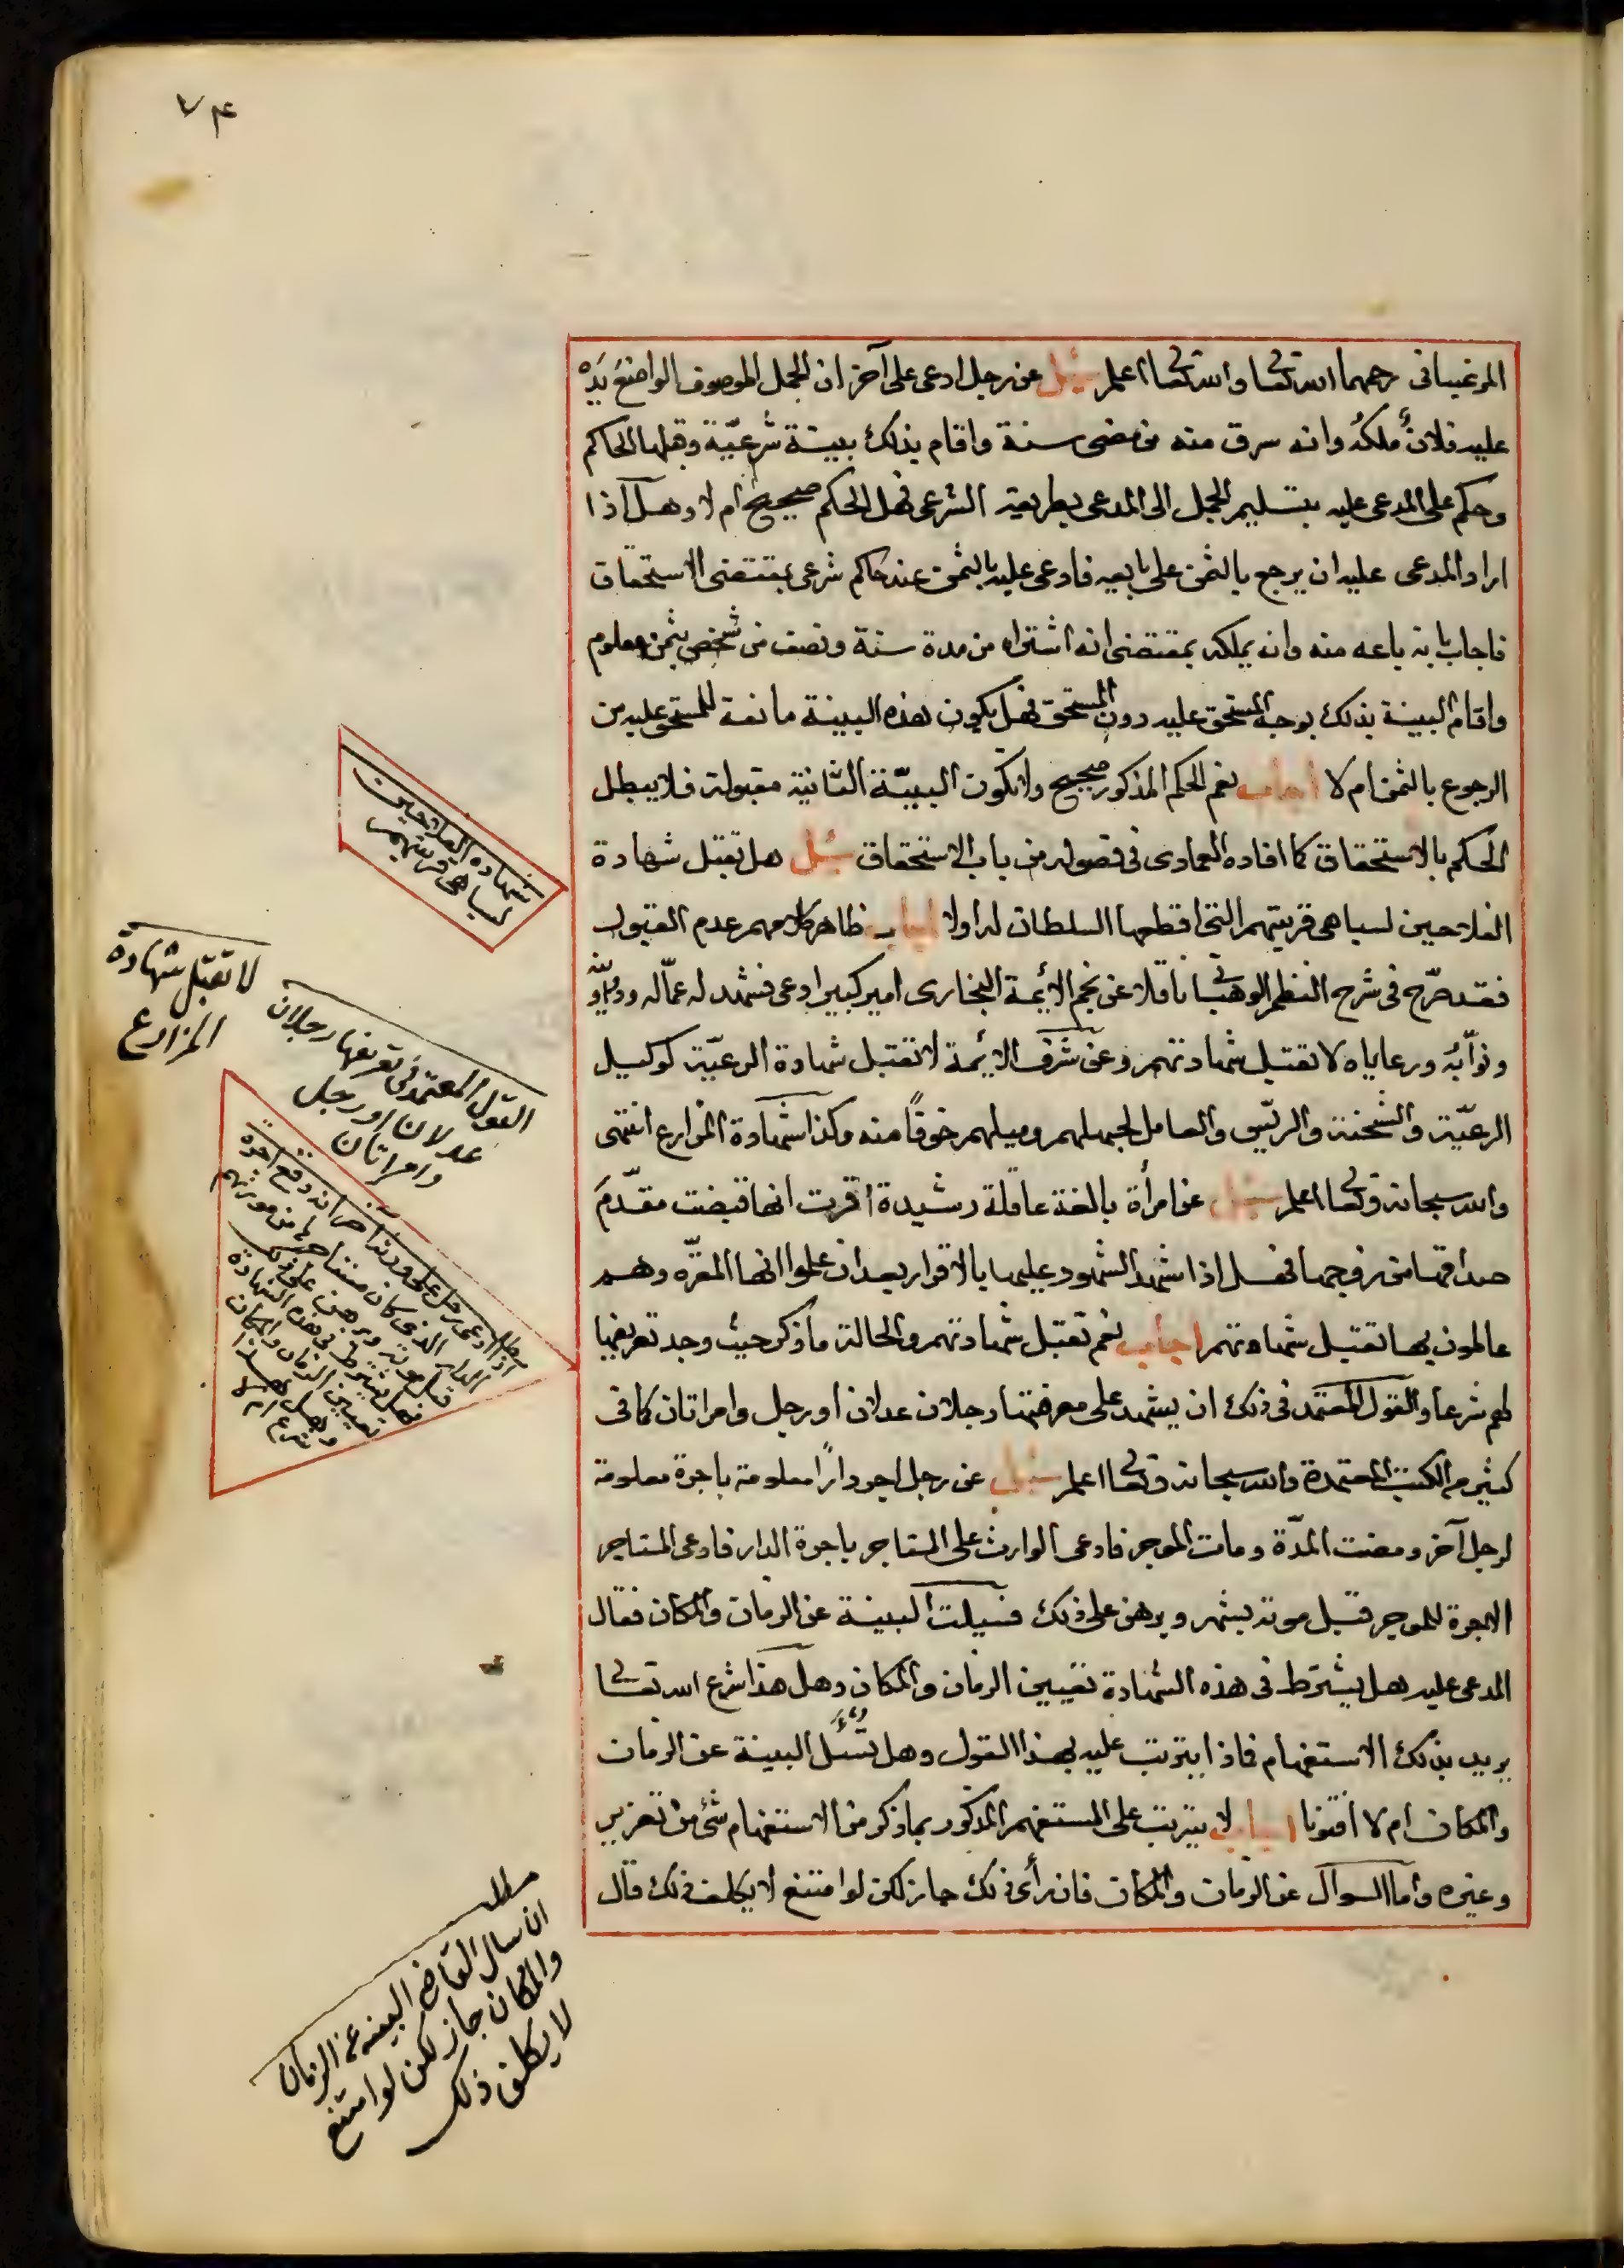 ٧٤
المرغيناني رحمهما الله تعالى والله تعالى اعلم سئل عن رجل ادعى على آخر ان الجمل الموصوف الواضع يده
عليه فلانٌ ملكه وانه سرق منه من مضى سنة واقام بذلك بينة شرعيّة وقبلها الحاكم
وحكم على المدعى عليه بتسليم الجمل الى المدعى بطريقه الشرعى فهل الحكم صحيح ام لا وهل اذا
اراد المدعى عليه ان يرجع بالثمن على بايعه فادعى عليه بالثمن عند حاكم شرعى بمقتضى الاستحقاق
فاجاب بانه باعه منه وانه يملكه بمقتضى انه اشتراه من مدة سنة ونصف من شخص بثمن معلوم
واقام البينة بذلك بوجه المستحق عليه دون المستحق فهل يكون هذه البينة مانعة للمستحق عليه من
الرجوع بالثمن ام لا اجاب نعم الحكم المذكور صحيح ولا تكون البيّنة الثانية مقبولة فلا يبطل
الحكم بالاستحقاق كما افاده العمادى فى فصوله من باب الاستحقاق سئل هل تقبل شهادة
الفلاحين لسباهى قريتهم التى اقطعها السلطان له اولا اجاب ظاهر كلامهم عدم القبول
فقد صرّح فى شرح النظم الوهبانى ناقلا عن نجم الأئمة البخارى امير كبير ادعى فشهد له عمّاله ودواوينه
ونوّابه ورعاياه لا تقبل شهادتهم وعن شرف الائمة لا تقبل شهادة الرعيّة كوكيل
الرعيّة والشحنة والريّس والعامل لجهلهم وميلهم خوفًا منه وكذا شهادة المزارع انتهى
والله سبحانه وتعالى اعلم سئل عن امرأة بالغة عاقلة رشيدة اقرت انها قبضت مقدّمَ
صداقها من زوجها فهل اذا شهد الشهود عليها بالاقرار بعد ان علموا انها المقرّه وهم
عالمون بها تقبل شهادتهم اجاب نعم تقبل شهادتهم والحالة ما ذكر حيث وجد تعريفها
لهم شرعا والقول المعتمد فى ذلك ان يشهد على معرفتها رجلان عدلان او رجل وامراتان كما فى
كثير من الكتب المعتمدة والله سبحانه وتعالى اعلم سئل عن رجل اجر دارًا معلومة باجرة معلومة
لرجل آخر ومضت المدّة ومات الموجر فادعى الوارث على المستاجر باجرة الدار فادعى المستاجر
الاجرة للموجر قبل موته بشهر وبرهن على ذلك فسيلت البينة عن الزمان والمكان فقال
المدعى عليه هل يشترط فى هذه الشهادة تعيين الزمان والمكان وهل هذا شرع الله تعالى
يريد بذلك الاستفهام فماذا يترتب عليه بهذا القول وهل تُسْئَل البينة عن الزمان
والمكان ام لا افتونا اجاب لا يترتب على المستفهم المذكور بما ذكر من الاستفهام شئ من تعزير
وغيره واما السوال عن الزمان والمكان فان رأى ذلك جاز لكن لو امتنع لا يكلف ذلك قال
شهادة الفلاحين
لسباهى قريتهم
لا تقبل شهادة
المزارع
القول المعتمد فى تعريفها رجلان
عدلان او رجل
وامراتان
اذا ادعى رجل على ورثة آخر انه دفع اجرة
الدار الذى كان مستاجرها من مورثهم
قبل موته وبرهن على ذلك
فهل يشترط فى هذه الشهادة
تعيين الزمان والمكان
وهل هذا
شرع ام لا
مطلب
ان سال القاضى البينه عن الزمان
والمكان جاز لكن لو امتنع
لا يكلف ذلك